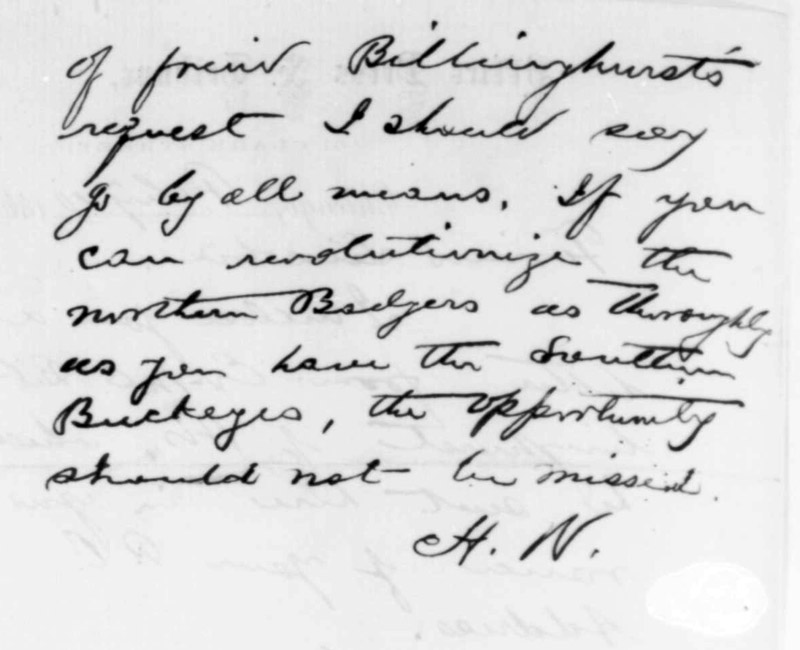 of freind Billinghurst's
request I should say
go by all means. If you
can revolutionize the
northern Badgers as thoroughly
as you have the Southern
Buckeyes, the opportunity
should not be missed.
H. N.